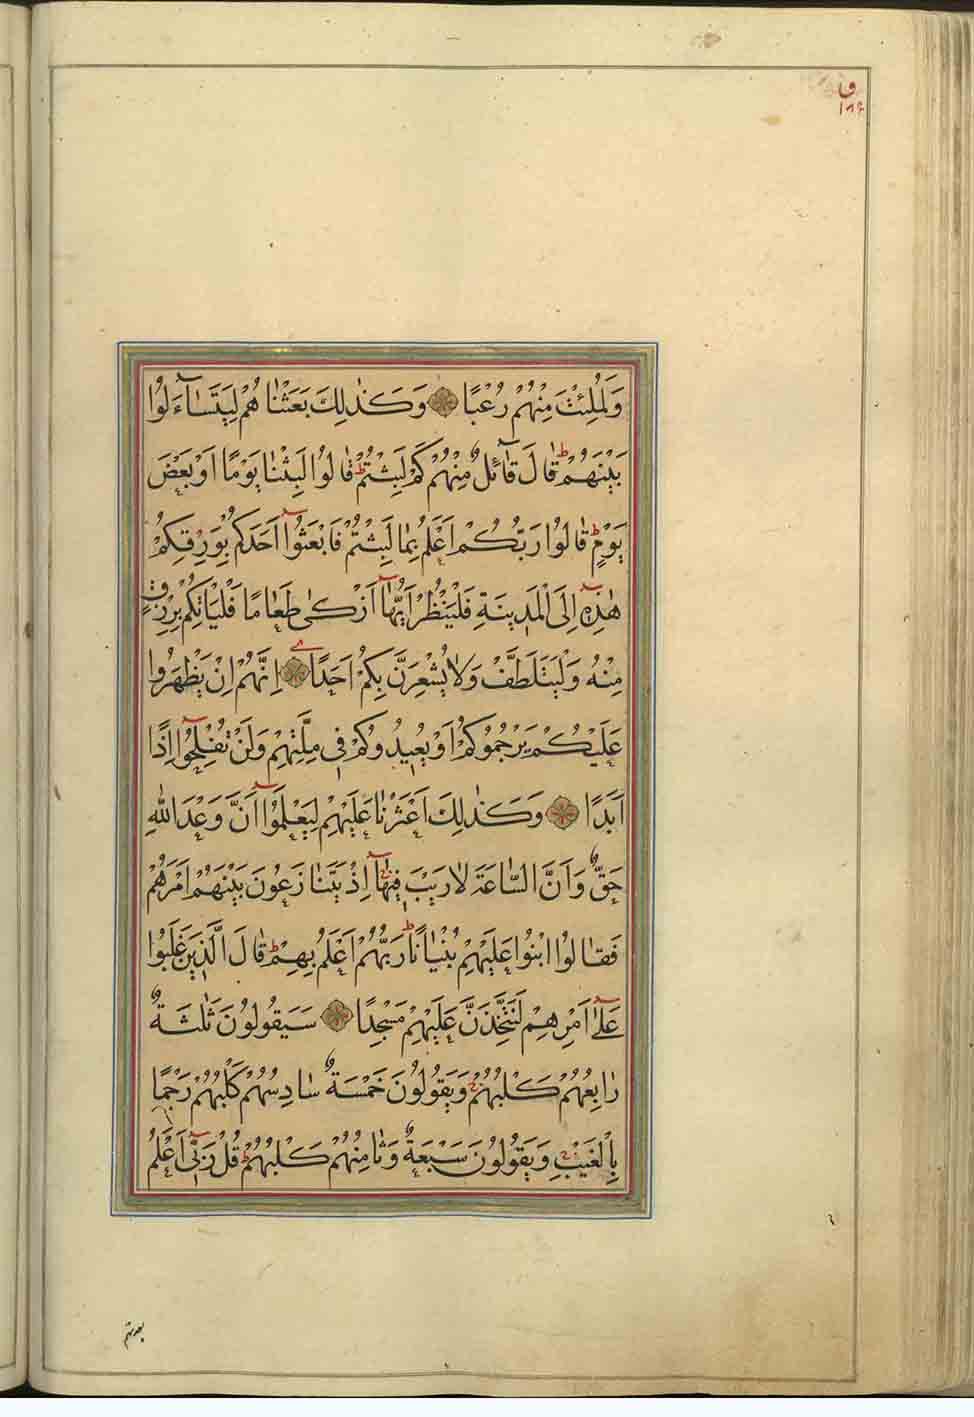 ق
١٨٦
وَلَمُلِئْتَ مِنْهُمْ رُعْبًا وَكَذٰلِكَ بَعَثْنَاهُمْ لِيَتَسَآءَلُوا
بَيْنَهُمْ ط قَالَ قَآئِلٌ مِنْهُمْ كَمْ لَبِثْتُمْ ط قَالُوا لَبِثْنَا يَوْمًا اَوْ بَعْضَ
يَوْمٍ ط قَالُوا رَبُّكُمْ اَعْلَمُ بِمَا لَبِثْتُمْ فَابْعَثُوٓا اَحَدَكُمْ بِوَرِقِكُمْ
هٰذِهٖٓ اِلَى الْمَدِينَةِ فَلْيَنْظُرْ اَيُّهَآ اَزْكٰى طَعَامًا فَلْيَاْتِكُمْ بِرِزْقٍ
مِنْهُ وَلْيَتَلَطَّفْ وَلَا يُشْعِرَنَّ بِكُمْ اَحَدًا اِنَّهُمْ اِنْ يَظْهَرُوا
عَلَيْكُمْ يَرْجُمُوكُمْ اَوْ يُعِيدُوكُمْ فِي مِلَّتِهِمْ وَلَنْ تُفْلِحُوٓا اِذًا
اَبَدًا وَكَذٰلِكَ اَعْثَرْنَا عَلَيْهِمْ لِيَعْلَمُوٓا اَنَّ وَعْدَ اللّٰهِ
حَقٌّ وَاَنَّ السَّاعَةَ لَا رَيْبَ فِيهَآ اِذْ يَتَنَازَعُونَ بَيْنَهُمْ اَمْرَهُمْ
فَقَالُوا ابْنُوا عَلَيْهِمْ بُنْيَانًا ط رَبُّهُمْ اَعْلَمُ بِهِمْ ط قَالَ الَّذِينَ غَلَبُوا
عَلٰٓى اَمْرِهِمْ لَنَتَّخِذَنَّ عَلَيْهِمْ مَسْجِدًا سَيَقُولُونَ ثَلٰثَةٌ
رَابِعُهُمْ كَلْبُهُمْ وَيَقُولُونَ خَمْسَةٌ سَادِسُهُمْ كَلْبُهُمْ رَجْمًا
بِالْغَيْبِ وَيَقُولُونَ سَبْعَةٌ وَثَامِنُهُمْ كَلْبُهُمْ قُلْ رَبِّىٓ اَعْلَمُ
بعدتهم